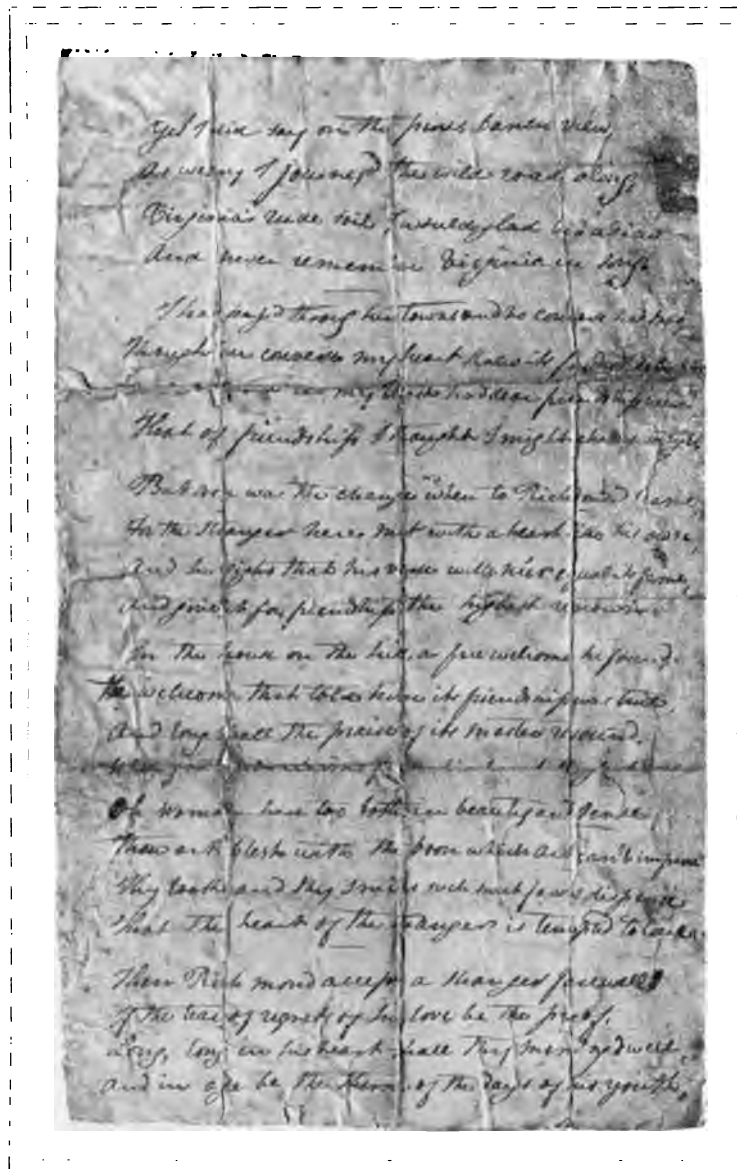 Yet I did say on the pines barren view,
As weary I journey'd the wild road along,
Virginia's rude soil I would glad bid adieu
And never remember Virginia in song.
I had pass'd through her towns and no converse had
Though in converse my heart
my had dear friendship
That of friendship I thought I might
But soon was the change when to Richmond I came,
For the stranger here met with a heart like his own,
And he sighs that his verse will ne'er equal its fame,
And give it for friendship the highest renown.
In the house on the hill, a free welcome he found.
The welcome that told him its friendship was true,
And long shall the praise of its master resound,
Of woman here too both in beauty and sense
Thou art blest with the boon which Art can't improve
Thy looks and thy smiles such sweet dispense
That the heart of the stranger is tempted to
Then Richmond accept a stranger's farewell
If the tear of regret of his love be the proof,
Long, long in his heart shall thy mem'ry dwell,
And in age be the theme of the days of his youth.